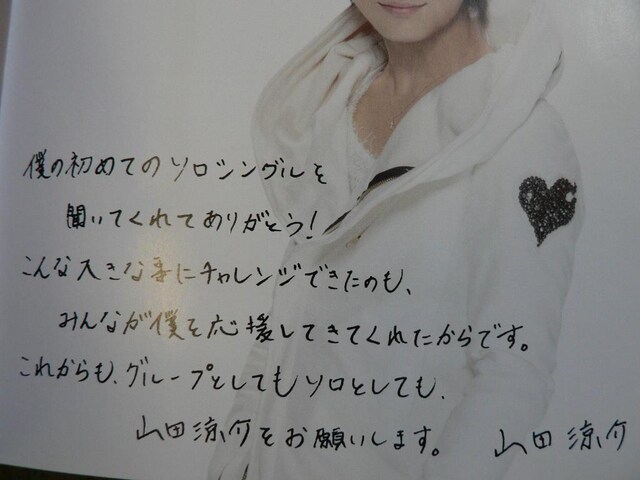 僕の初めてのソロシングルを
聞いてくれてありがとう!
こんな大きな事にチャレンジできたのも、
みんなが僕を応援してきてくれたからです。
これからも、グループとしてもソロとしても、
山田涼介をお願いします。 山田涼介